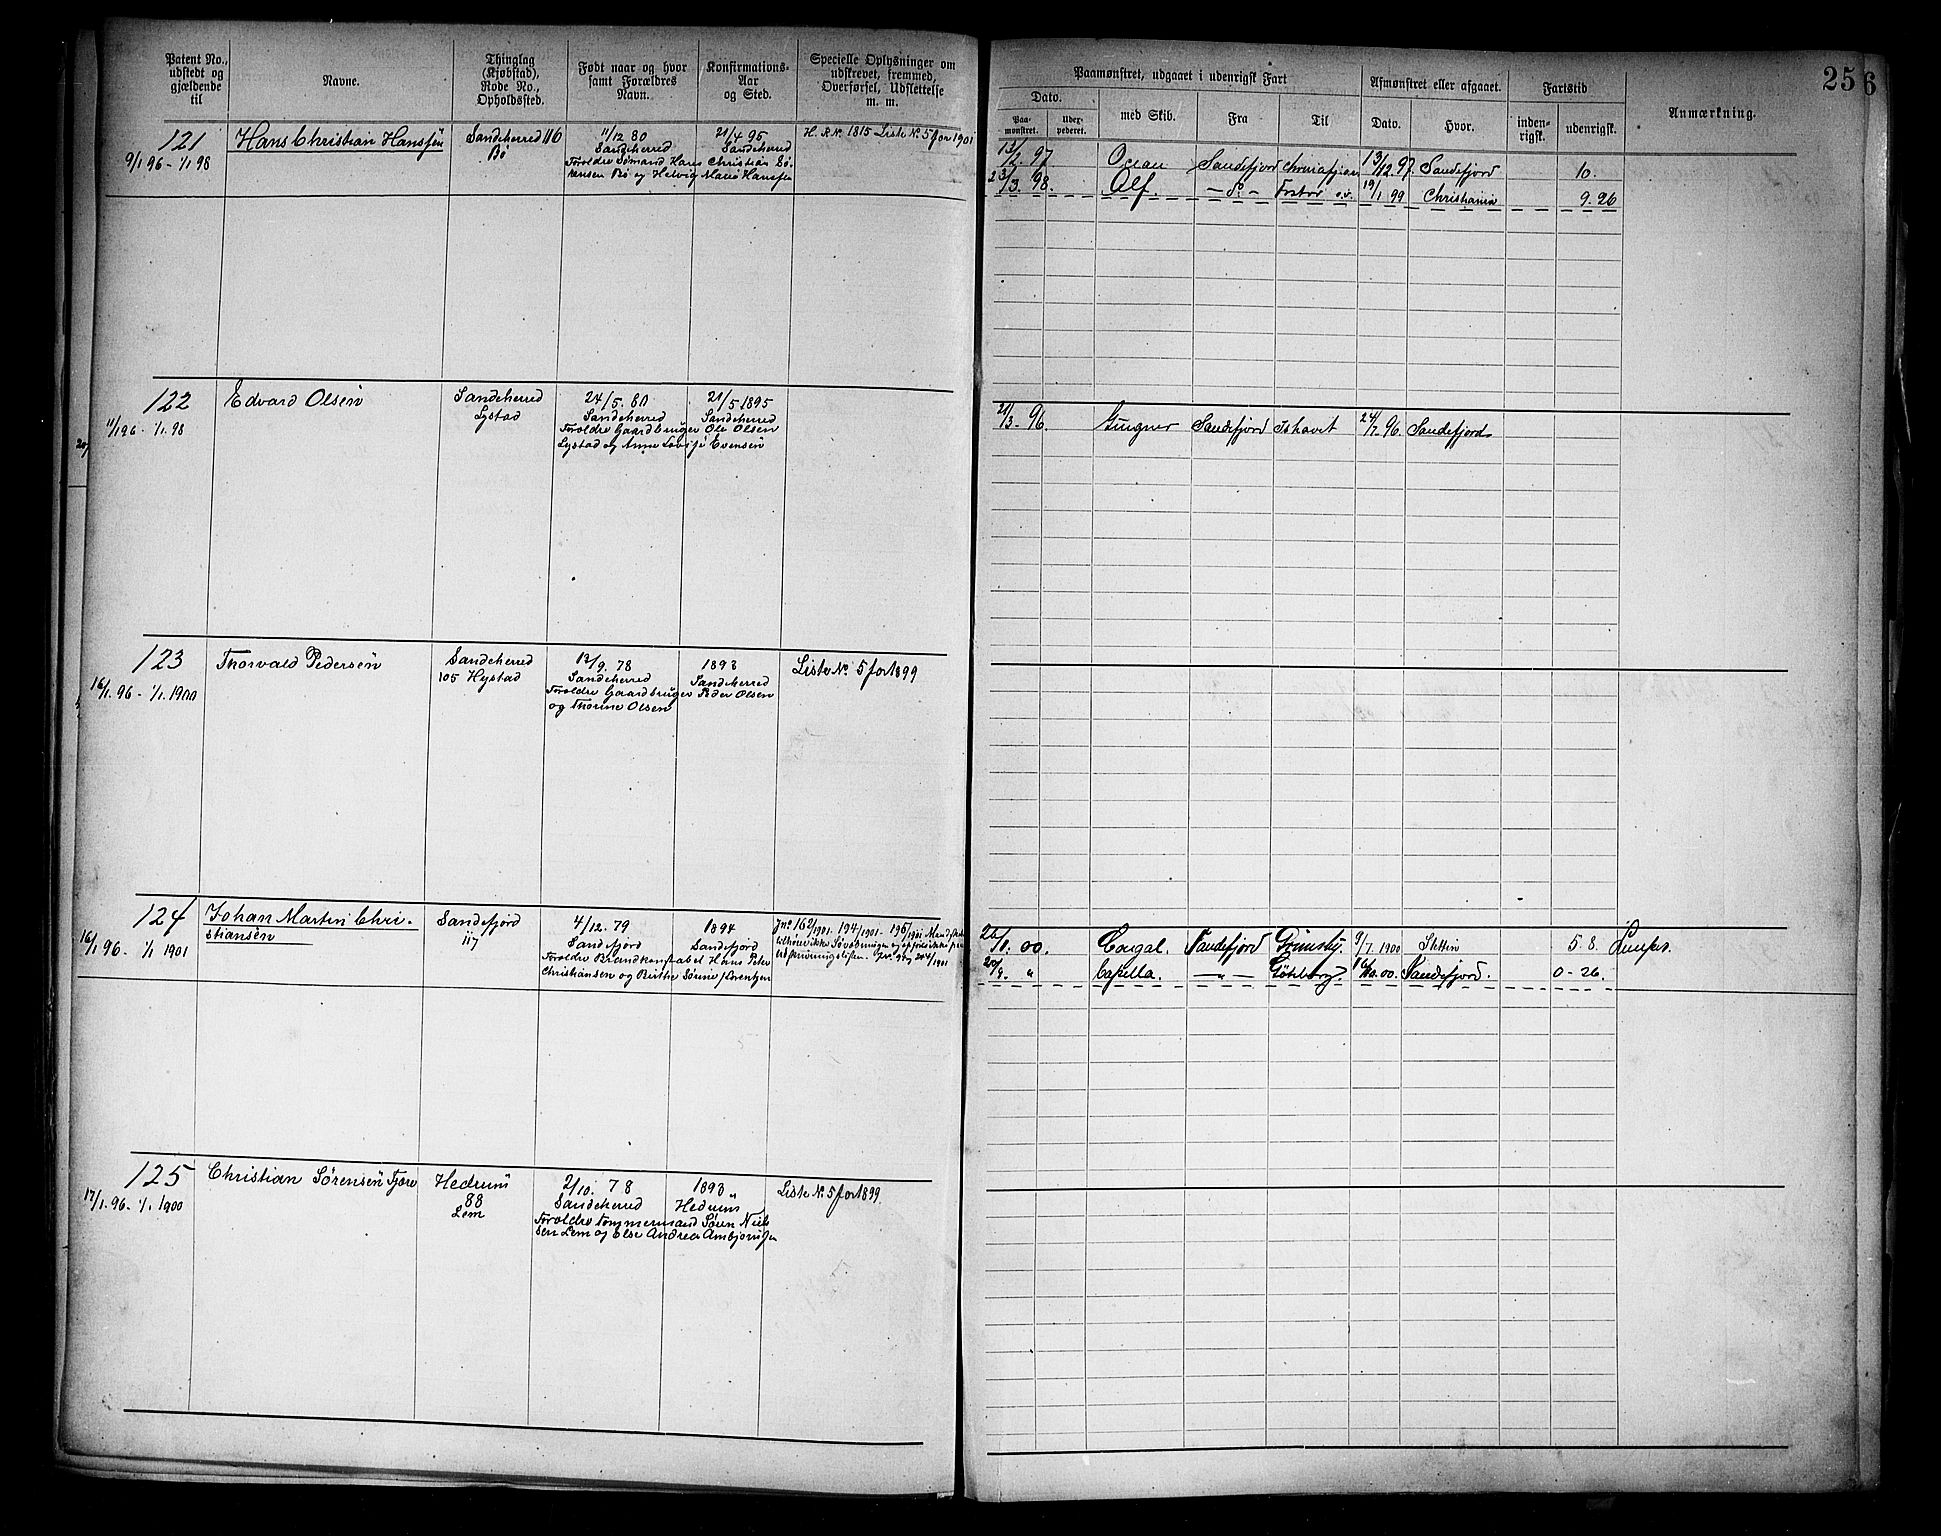 Patent No., udstedt og gjældende til
Navne.
Thinglag (Kjøbstad), Rode No., Opholdssted.
Født naar og hvor samt Forældres Navn.
Konfirmations- Aar og Sted.
Specielle Oplysninger om udskrevet, fremmed, Overførsel, Udslettelse m. m.
Paamønstret, udgaaet i udenrigsk Fart
Dato.
Paa- mønstret.
Udex- pederet.
med Skib.
Fra
Til
Afmønstret eller afgaaet.
Dato.
Hvor.
Fartstid
inden- rigsk.
udenrigsk.
Anmærkning.
25
6
121
9/1 96 - 1/1 98
Hans Christian Hanssen
Sandeherred 116
Bø
11/12 80
Sandeherred
Forældre Sømand Hans Christian Sø-
rensen Bø og Helvig Marie Hanssen
21/4 95
Sandeherred
H. R. N. 1815 Liste N. 5 for 1901
13/2 97 Ocean Sandefjord 13/12 97 Sandefjord 10.
23/3. 98. Alf. — do — 19/1 99 Christiania 9. 26
122
11/1 96 - 1/1. 98
Edvard Olsen
Sandeherred
Lystad
24/5. 80
Sandeherred
Forældre Gaardbruger Ole Olsen
Lystad og Anne Lovise Evensen
21/5 1895
Sandeherred
21/3. 96 Sandefjord Ishavet 24/7. 96. Sandefjord
123
16/1. 96 - 1/1. 1900
Thorvald Pedersen
Sandeherred
105 Hystad
13/9. 78
Sandeherred
Forældre Gaardbruger Peder Olsen
og Thorine Olsen
1893
Sandeherred
Liste No. 5 for 1899
124
16/1 96. - 1/1 1901
Johan Martin Chri-
stiansen
Sandefjord
117
4/12. 79
Sandefjord
Forældre Brandkonstabel Hans Peter
Christiansen og Birthe Sørine Lorentzen
1894
Sandefjord
00. Sandefjord Grimsby. 9/7. 1900 Stettin 5. 8.
20/9. " Capella. — " — Gøteborg 00. Sandefjord. 0 - 26.
125
17/1. 96. - 1/1. 1900
Christian Sørensen Fjære
Hedrum
88
Lem
2/10. 78
Sandeherred
Forældre Tømmermand Søren Niel-
sen Lem og Else Andrea Ambjørnsen
1893
Hedrum
Liste N. 5 for 1899.